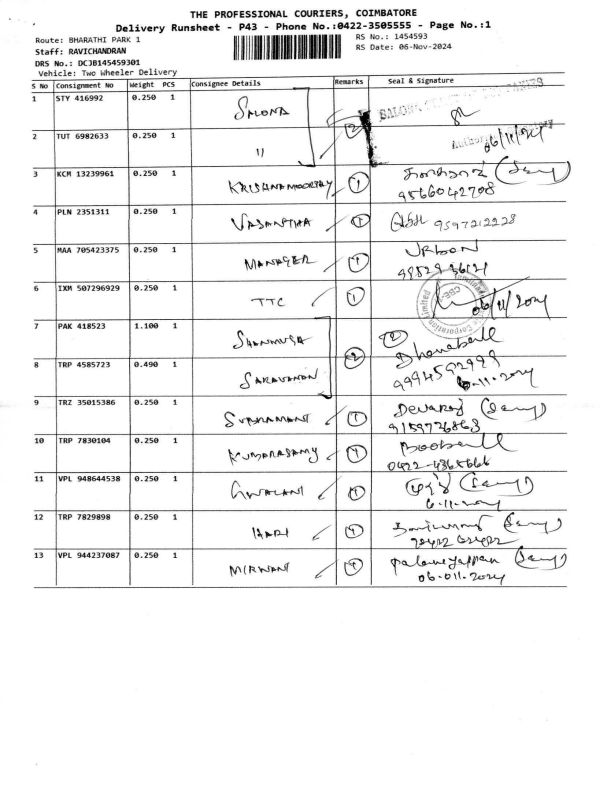 THE PROFESSIONAL COURIERS, COIMBATORE
Delivery Runsheet - P43 - Phone No.:0422-3505555 - Page No.:1
Route: BHARATHI PARK 1
RS No.: 1454593
Staff: RAVICHANDRAN
RS Date: 06-Nov-2024
DRS No.: DCJB145459301
Vehicle: Two Wheeler Delivery
S No Consignment No Weight PCS Consignee Details Remarks Seal & Signature
1 STY 416992 0.250 1 SALONA 2
2 TUT 6982633 0.250 1 11 06/11/2024
3 KCM 13239961 0.250 1 KRISHNAMOORTHY 1
9566042708
4 PLN 2351311 0.250 1 VASANTHA 1 9597212228
5 MAA 705423375 0.250 1 MANAGER 1 URBON
6 IXM 507296929 0.250 1 TTC 1 06/11/2024
7 PAK 418523 1.100 1 SHANMUGA 2 Dhanaball
8 TRP 4585723 0.490 1 SARAVANAN 9994592999
6-11-2024
9 TRZ 35015386 0.250 1 SUBRAMANI 1 Devaraj
9159726863
10 TRP 7830104 0.250 1 KUMARASAMY 1 Booball
0422-4365666
11 VPL 948644538 0.250 1 GWALANI 1
6-11-2024
12 TRP 7829898 0.250 1 HARI 1
13 VPL 944237087 0.250 1 MIRWANI 1 Palaniyappan
06-011-2024